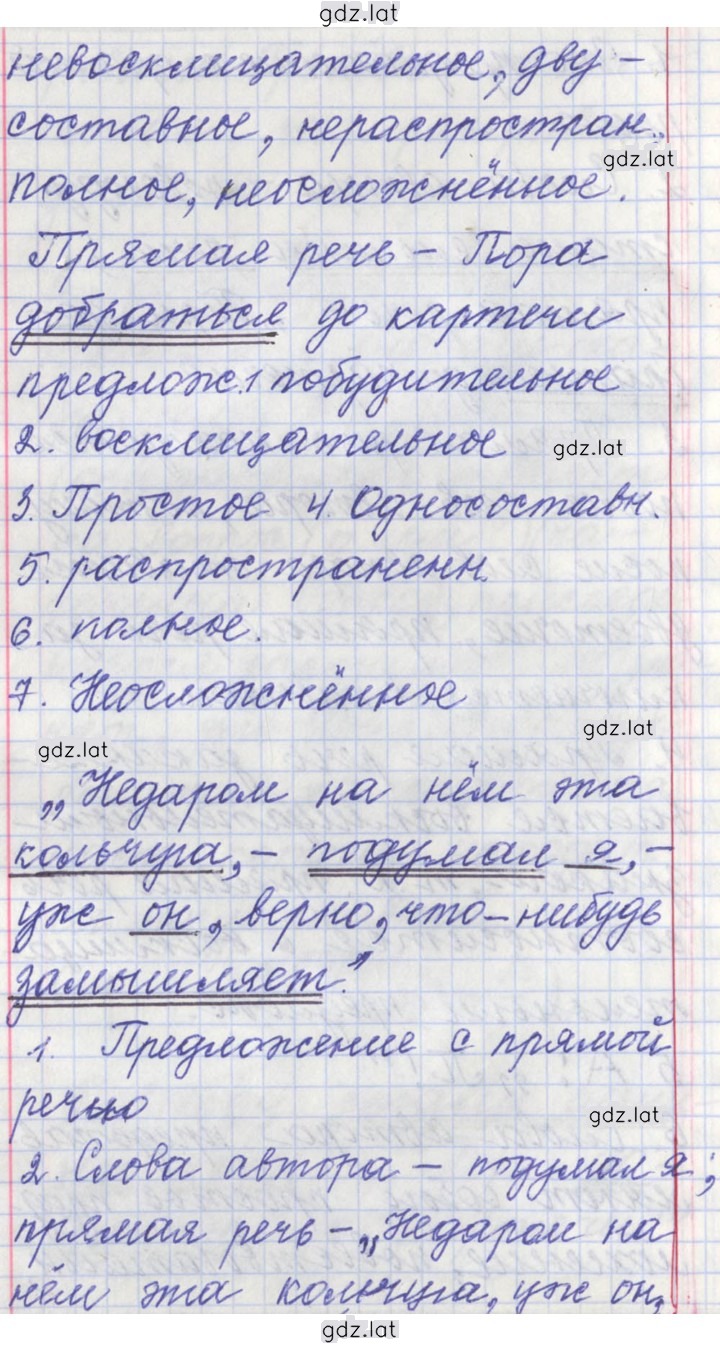 gdz.lat
невосклицательное, дву-
составное, нераспростран.,
gdz.lat
полное, неосложнённое.
Прямая речь - Пора
добраться до картечи
предлож. 1 побудительное
2. восклицательное
gdz.lat
3. Простое 4. Односоставн.
5. распространенн.
6. полное.
7. Неосложнённое
gdz.lat
gdz.lat
„Недаром на нём эта
кольчуга, - подумал я, -
уж он, верно, что-нибудь
замышляет."
1. Предложение с прямой
речью
gdz.lat
2. Слова автора - подумал я;
прямая речь - „Недаром на
нём эта кольчуга, уж он,
gdz.lat